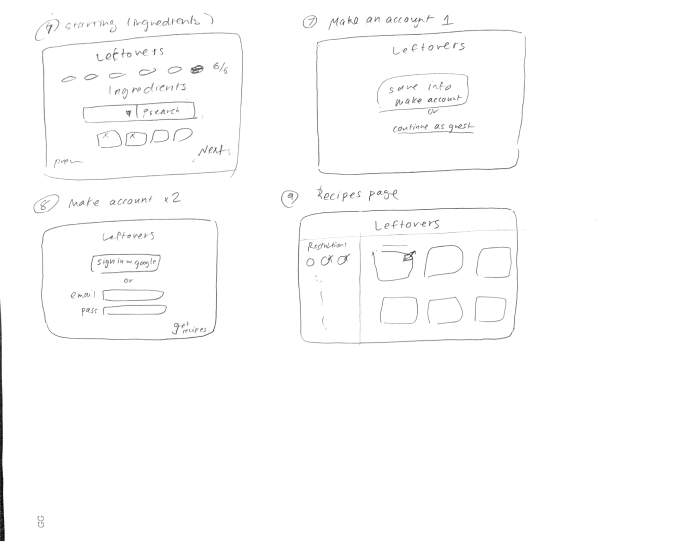 starting (ingredients)
Leftovers
6/6
Ingredients
search
prev
Next
7 Make an account 1
Leftovers
save info
make account
or
continue as guest
8 Make account x2
Leftovers
Sign in w google
or
email
pass
get
recipes
9 Recipes page
Leftovers
Restrictions
GG